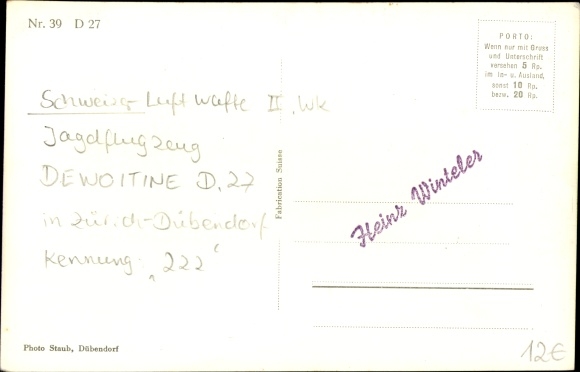 Nr. 39 D 27
PORTO:
Wenn nur mit Gruss
und Unterschrift
versehen 5 Rp.
im In- u. Ausland,
sonst 10 Rp.
bezw. 20 Rp.
Schweizer Luftwaffe II. Wk
Jagdflugzeug
DEWOITINE D.27
in Zürich-Dübendorf
Kennung: „222“
Fabrication Suisse
Heinz Winteler
Photo Staub, Dübendorf
12€